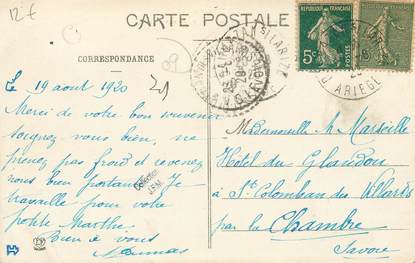 12 f
CARTE POSTALE
CORRESPONDANCE
Le 19 aout 1920
Merci de votre bon souvenir
soignez vous bien, ne
prenez pas froid et revenez
nous bien portante. Je
travaille pour votre
petite Marthe.
Bien à vous
Collection
J.F.M.
REPUBLIQUE FRANÇAISE
5c
POSTES
ARIEGE
Mademoiselle M. Marseille
Hotel du Glandon
à St Colomban des Villards
par la Chambre
Savoie